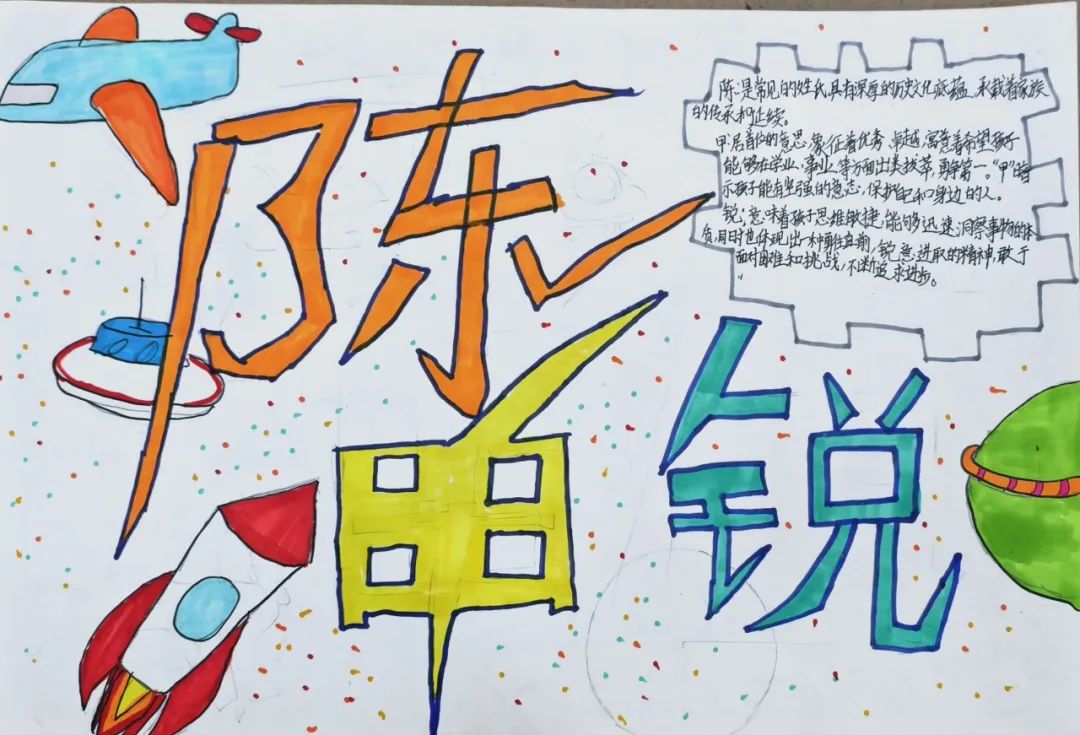 陈
甲
锐
陈:是常见的姓氏,具有深厚的历史文化底蕴,承载着家族
的传承和延续。
甲:居首位的意思,象征着优秀、卓越,寓意着希望孩子
能够在学业、事业等方面出类拔萃,勇争第一。“甲”暗
示孩子能有坚强的意志,保护自己和身边的人。
锐:意味着孩子思维敏捷,能够迅速洞察事物的本
质,同时也体现出一种勇往直前、锐意进取的精神,敢于
面对困难和挑战,不断追求进步。